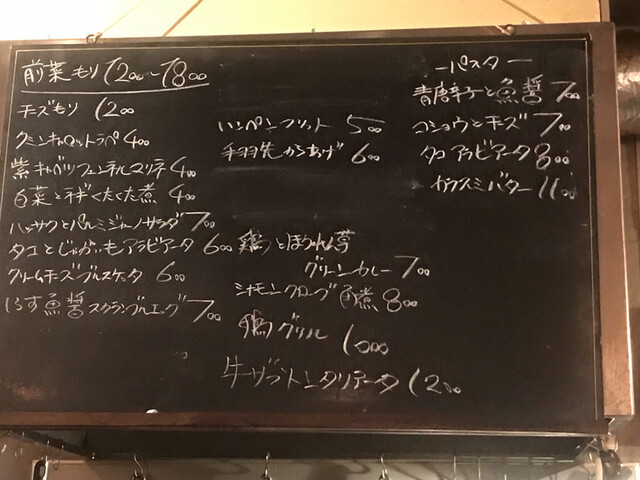 前菜もり 1200〜1800
チーズもり 1200
クミンキャロットラペ 400
紫キャベツフェンネルマリネ 400
白菜とネギくたくた煮 400
ハッサクとパルミジャーノサラダ 700
タコとじゃがいもアラビアータ 600
クリームチーズブルスケッタ 600
しらす魚醤スクランブルエッグ 700
ハンペンフリット 500
手羽先からあげ 600
鶏とほうれん草
グリーンカレー 700
シナモンクローブ角煮 800
鶏グリル 1000
牛ザブトンタリアータ 1200
ーパスター
青唐辛子と魚醤 700
コショウとチーズ 700
タコアラビアータ 800
カラスミバター 1100